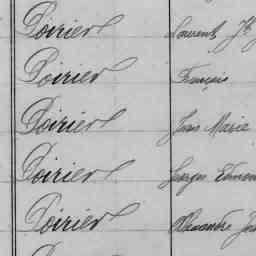 Poirier Laurent Jh
Poirier François
Poirier Jean Marie
Poirier Georges Edmon
Poirier Alexandre Jos